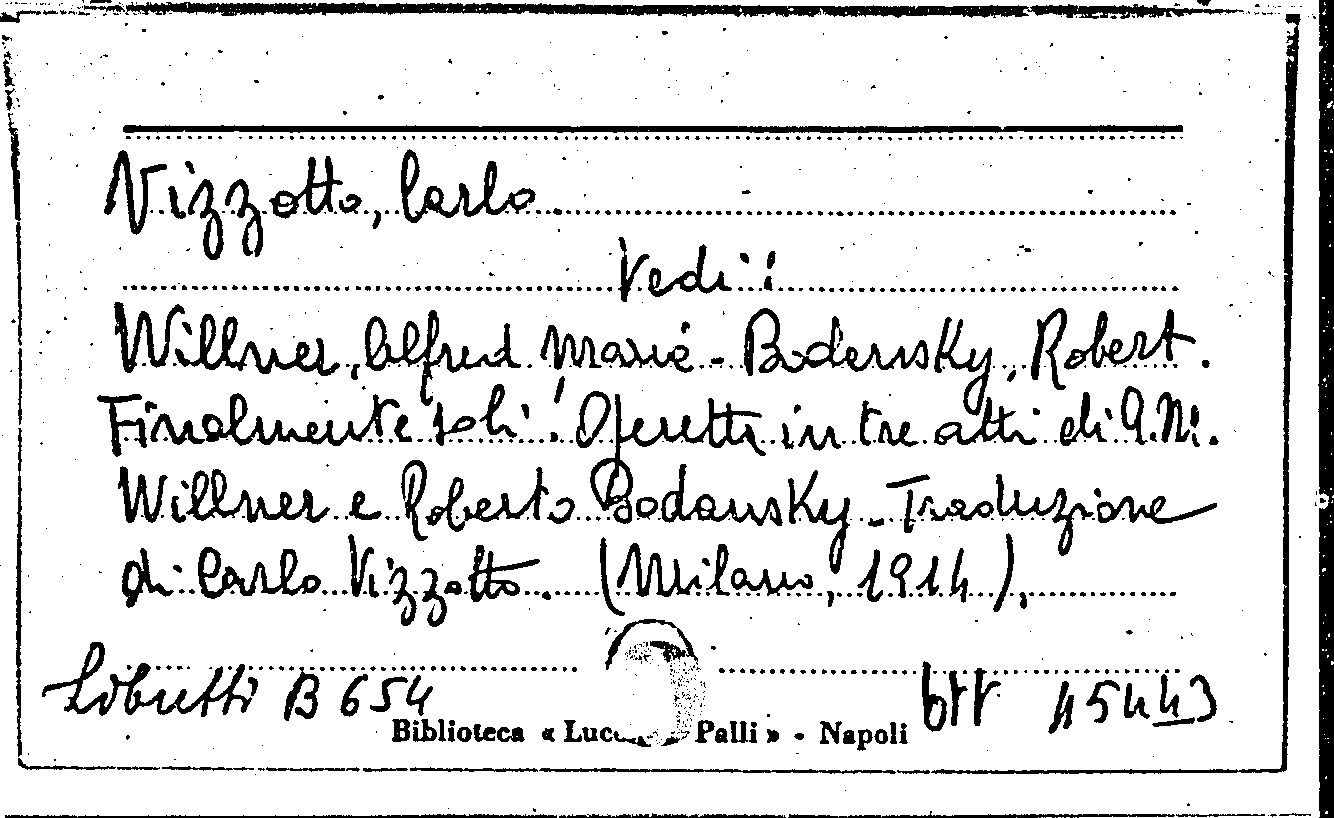 Vizzotto, Carlo
Vedi:
Willner, Alfred Maria - Bodensky, Robert.
Finalmente soli! Operetta in tre atti di A.M.
Willner e Roberto Bodansky - Traduzione
di Carlo Vizzotto. (Milano, 1914).
Libretti B 654
Biblioteca « Palli » - Napoli